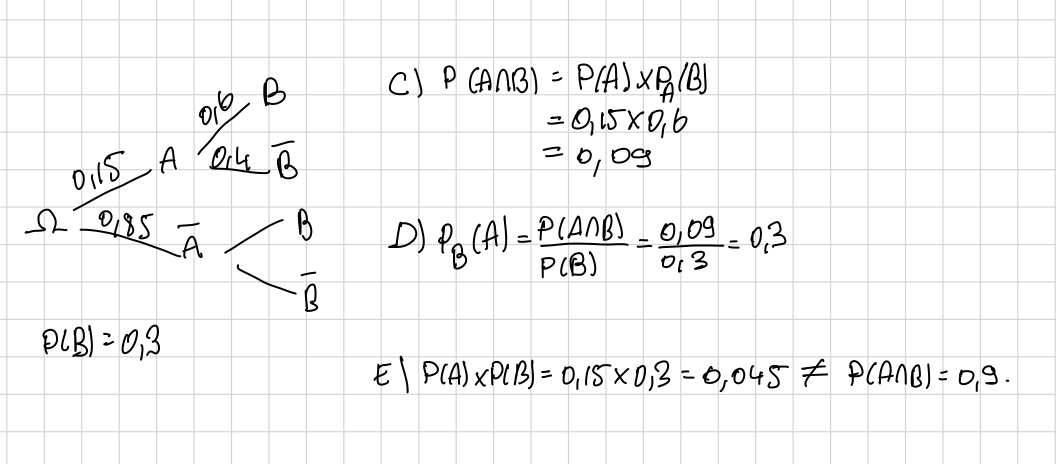 0,6 B
0,15 A 0,4 B̅
Ω 0,85 A̅ B
B̅
P(B) = 0,3
C) P(A∩B) = P(A) × P_A(B)
= 0,15 × 0,6
= 0,09
D) P_B(A) = P(A∩B)/P(B) = 0,09/0,3 = 0,3
E) P(A) × P(B) = 0,15 × 0,3 = 0,045 ≠ P(A∩B) = 0,9.